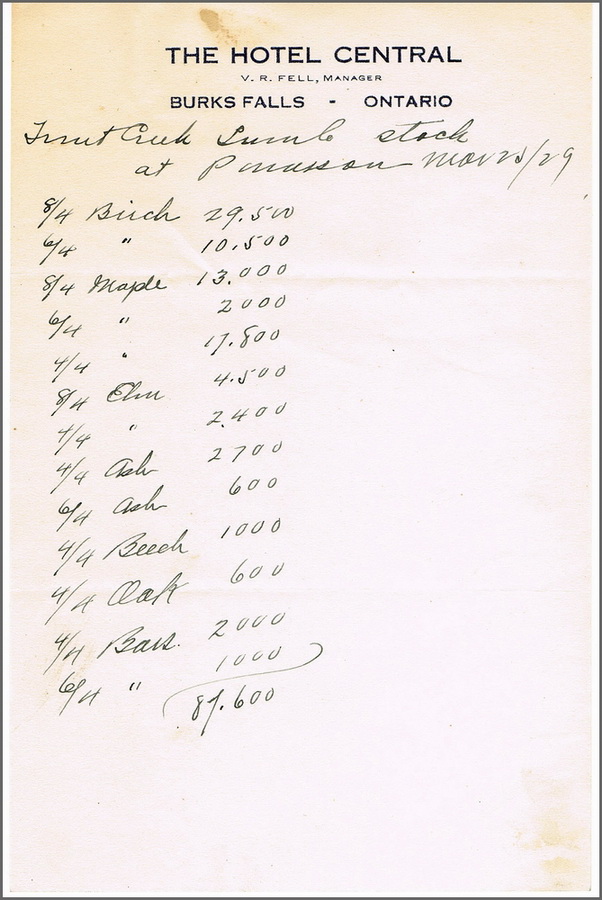 THE HOTEL CENTRAL
V. R. FELL, MANAGER
BURKS FALLS - ONTARIO
Trout Creek Lumb stock
at Powassan Nov /29
8/4 Birch 29.500
6/4 " 10.500
8/4 Maple 13.000
6/4 " 2000
4/4 " 17.800
8/4 Elm 4.500
4/4 " 2.400
4/4 Ash 2700
6/4 Ash 600
4/4 Beech 1000
4/4 Oak 600
4/4 Bass. 2000
6/4 " 1000
87.600